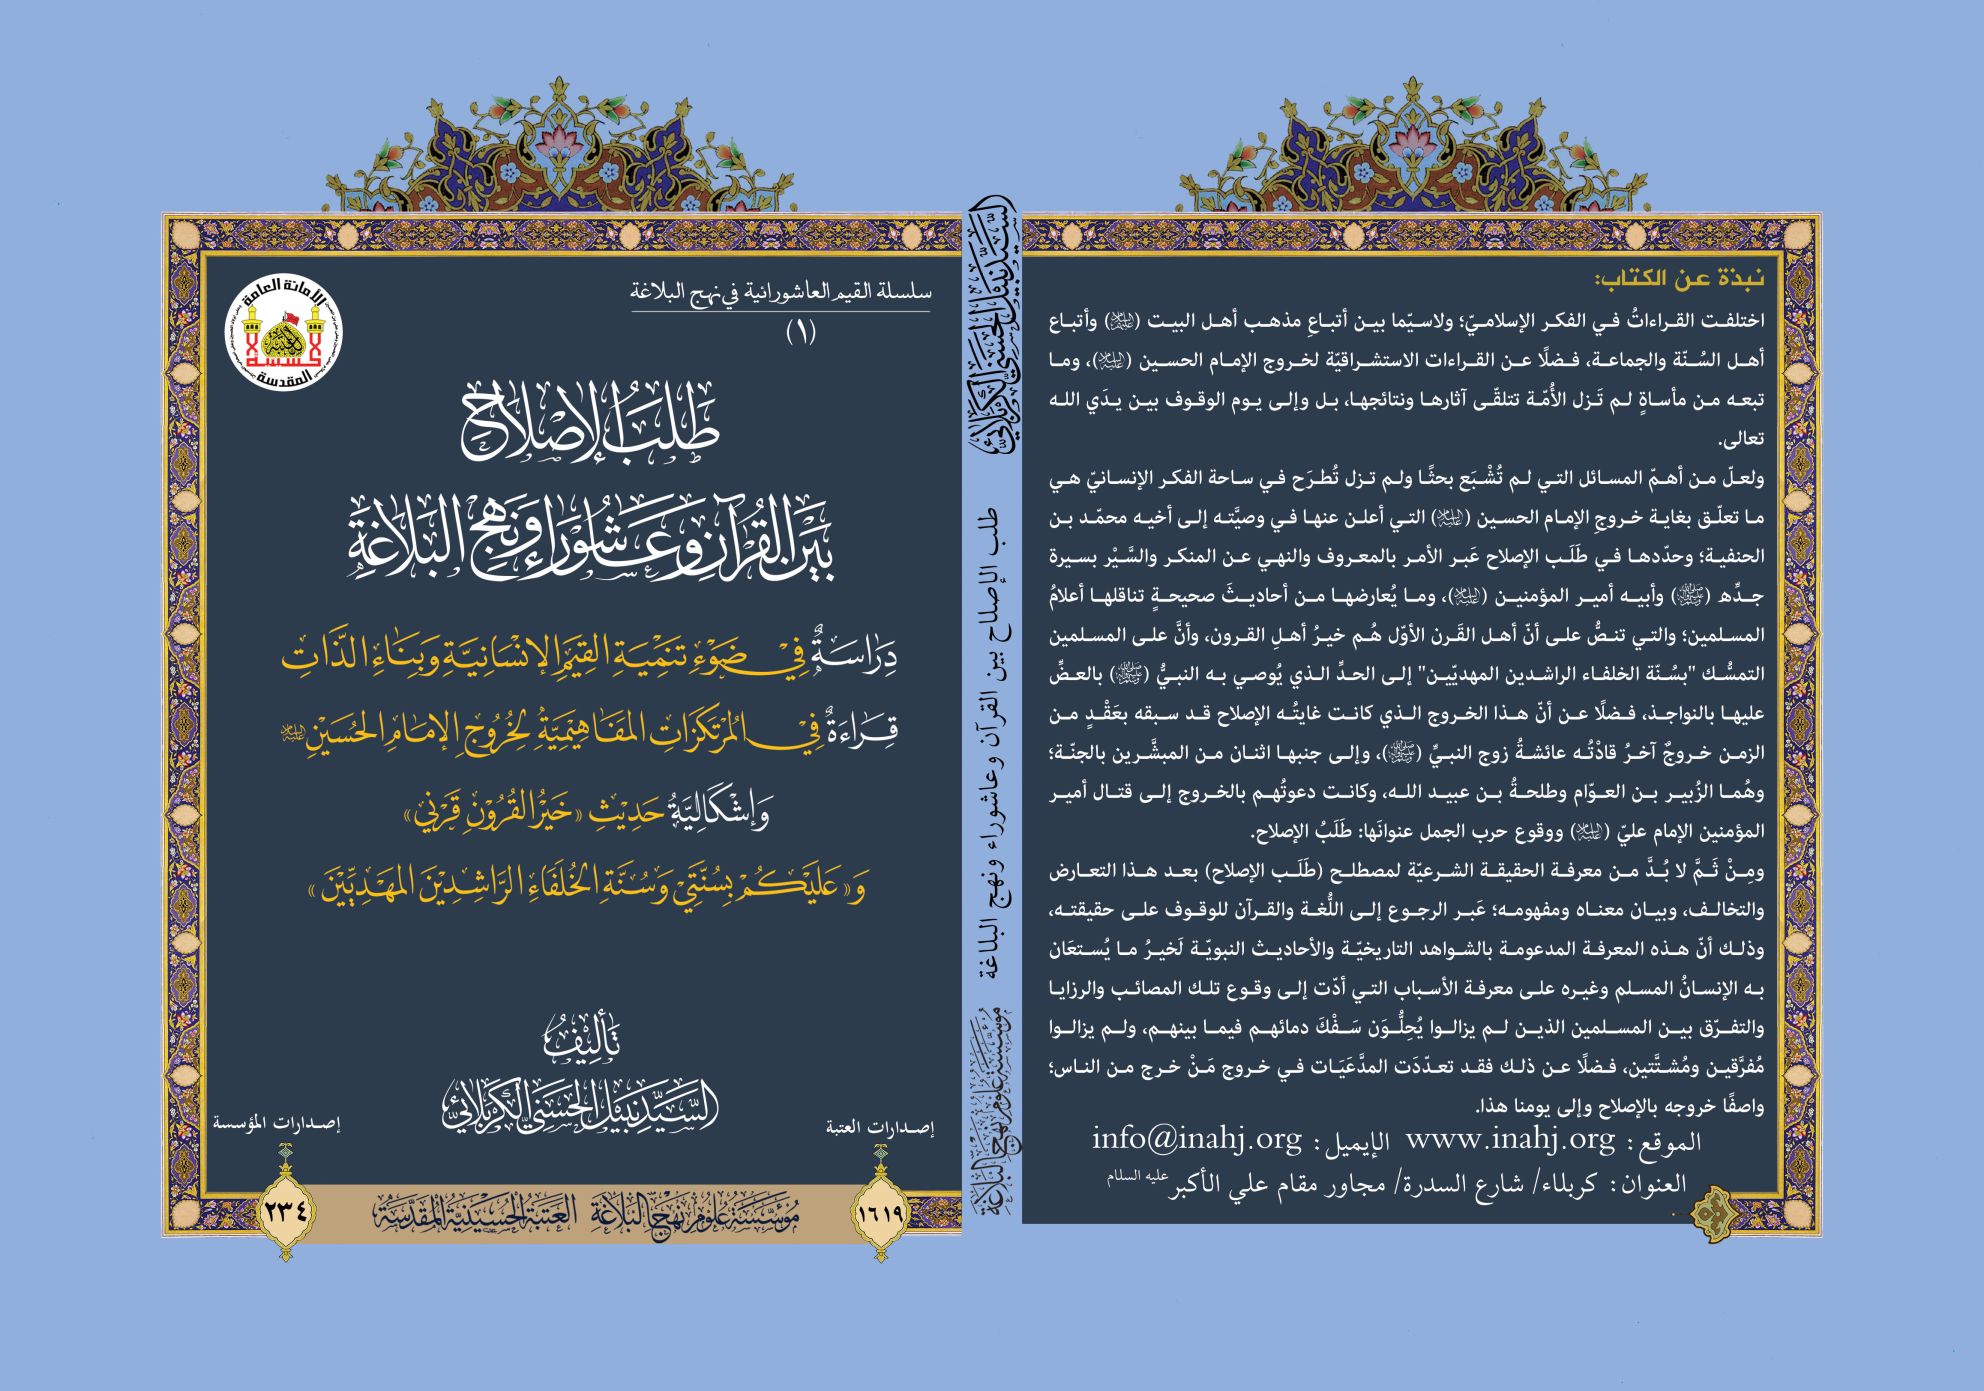 سلسلة القيم العاشورائية في نهج البلاغة
(١)
الأمانة العامة
المقدسة
طَلَبُ الإِصْلَاحِ
بَيْنَ القُرْآنِ وَعَاشُورَاءَ وَنَهْجِ البَلَاغَةِ
دِرَاسَةٌ فِي ضَوْءِ تَنْمِيَةِ القِيَمِ الإِنْسَانِيَّةِ وَبِنَاءِ الذَّاتِ
قِرَاءَةٌ فِي المُرْتَكَزَاتِ المَفَاهِيمِيَّةِ لِخُرُوجِ الإِمَامِ الحُسَيْنِ
وَإِشْكَالِيَّةُ حَدِيثِ «خَيْرُ القُرُوْنِ قَرْنِي»
وَ«عَلَيْكُمْ بِسُنَّتِي وَسُنَّةِ الخُلَفَاءِ الرَّاشِدِيْنَ المَهْدِيِّيْنَ»
تَأْلِيْفُ
السَّيِّد نَبِيْل الحَسَنِي الكَرْبَلَائِي
إصدارات العتبة
١٦١٩
إصدارات المؤسسة
٢٣٤
مُؤَسَّسَةُ عُلُومِ نَهْجِ البَلَاغَةِ العَتَبَةُ الحُسَيْنِيَّةُ المُقَدَّسَةُ
السيد نبيل الحسني الكربلائي
طلب الإصلاح بين القرآن وعاشوراء ونهج البلاغة
مؤسسة علوم نهج البلاغة
نبذة عن الكتاب:
اختلفت القراءاتُ في الفكر الإسلاميّ؛ ولاسيّما بين أتباعِ مذهب أهل البيت (عليهم السلام) وأتباع
أهل السُنّة والجماعة، فضلًا عن القراءات الاستشراقيّة لخروج الإمام الحسين (عليه السلام)، وما
تبعه من مأساةٍ لم تَزل الأُمّة تتلقّى آثارها ونتائجها، بل وإلى يوم الوقوف بين يدَي الله
تعالى.
ولعلّ من أهمّ المسائل التي لم تُشْبَع بحثًا ولم تزل تُطرَح في ساحة الفكر الإنسانيّ هي
ما تعلّق بغاية خروجِ الإمام الحسين (عليه السلام) التي أعلن عنها في وصيَّته إلى أخيه محمّد بن
الحنفية؛ وحدّدها في طَلَب الإصلاح عَبر الأمر بالمعروف والنهي عن المنكر والسَّيْر بسيرة
جدِّه (ﷺ) وأبيه أمير المؤمنين (عليه السلام)، وما يُعارضها من أحاديثَ صحيحةٍ تناقلها أعلامُ
المسلمين؛ والتي تنصُّ على أنّ أهل القَرن الأوّل هُم خيرُ أهلِ القرون، وأنَّ على المسلمين
التمسُّك "بسُنّة الخلفاء الراشدين المهديّين" إلى الحدِّ الذي يُوصي به النبيُّ (ﷺ) بالعضِّ
عليها بالنواجذ، فضلًا عن أنّ هذا الخروج الذي كانت غايتُه الإصلاح قد سبقه بعَقْدٍ من
الزمن خروجٌ آخرُ قادْتُه عائشةُ زوج النبيِّ (ﷺ)، وإلى جنبها اثنان من المبشَّرين بالجنّة؛
وهُما الزُبير بن العوّام وطلحةُ بن عبيد الله، وكانت دعوتُهم بالخروج إلى قتال أمير
المؤمنين الإمام عليّ (عليه السلام) ووقوع حرب الجمل عنوانَها: طَلَبُ الإصلاح.
ومِنْ ثَمَّ لا بُدَّ من معرفة الحقيقة الشرعيّة لمصطلح (طَلَب الإصلاح) بعد هذا التعارض
والتخالف، وبيان معناه ومفهومه؛ عَبر الرجوع إلى اللُّغة والقرآن للوقوف على حقيقته،
وذلك أنّ هذه المعرفة المدعومة بالشواهد التاريخيّة والأحاديث النبويّة لَخيرُ ما يُستعَان
به الإنسانُ المسلم وغيره على معرفة الأسباب التي أدّت إلى وقوع تلك المصائب والرزايا
والتفرّق بين المسلمين الذين لم يزالوا يُحِلُّوَن سَفْكَ دمائهم فيما بينهم، ولم يزالوا
مُفرَّقين ومُشتَّتين، فضلًا عن ذلك فقد تعدّدَت المدَّعَيَات في خروج مَنْ خرج من الناس؛
واصفًا خروجه بالإصلاح وإلى يومنا هذا.
الموقع: www.inahj.org الإيميل: info@inahj.org
العنوان: كربلاء/ شارع السدرة/ مجاور مقام علي الأكبر عليه السلام